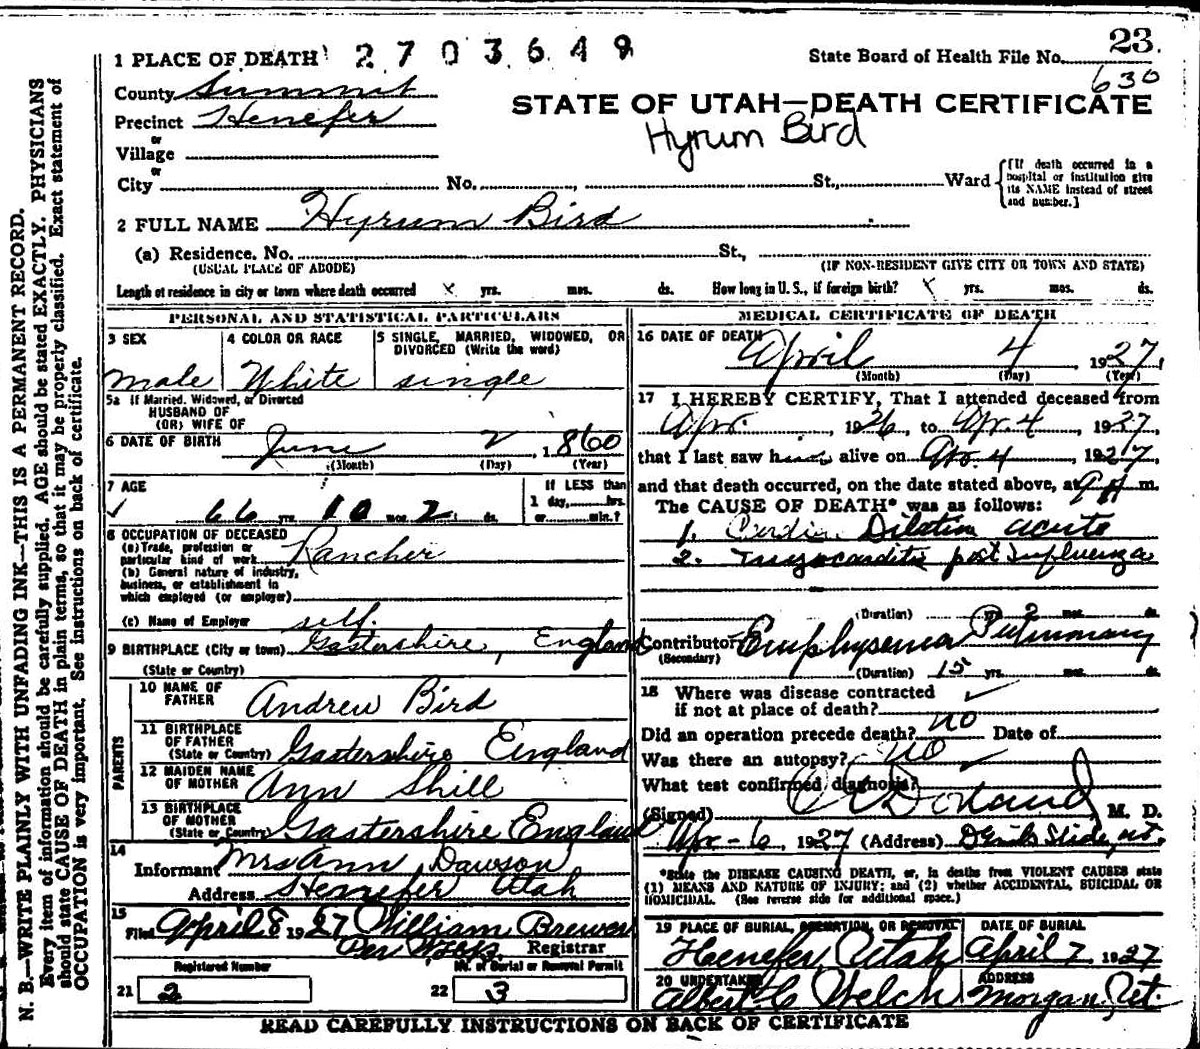 23.
1 PLACE OF DEATH 2703649 State Board of Health File No. 630
County Summit
STATE OF UTAH—DEATH CERTIFICATE
Precinct Henefer
Hyrum Bird
or
Village
or
City No. St., Ward {[If death occurred in a hospital or institution give its NAME instead of street and number.]
2 FULL NAME Hyrum Bird
(a) Residence. No. St.,
(USUAL PLACE OF ABODE) (IF NON-RESIDENT GIVE CITY OR TOWN AND STATE)
Length of residence in city or town where death occurred x yrs. mos. ds. How long in U. S., if foreign birth? yrs. mos. ds.
PERSONAL AND STATISTICAL PARTICULARS
3 SEX 4 COLOR OR RACE 5 SINGLE, MARRIED, WIDOWED, OR DIVORCED (Write the word)
male White single
5a If Married, Widowed, or Divorced
HUSBAND OF
(OR) WIFE OF
6 DATE OF BIRTH June 2, 1860
(Month) (Day) (Year)
7 AGE If LESS than
66 yrs. 10 mos. 2 ds. 1 day, hrs.
or min.?
8 OCCUPATION OF DECEASED
(a) Trade, profession or
particular kind of work Rancher
(b) General nature of industry,
business, or establishment in
which employed (or employer)
(c) Name of Employer self.
9 BIRTHPLACE (City or town) Gastershire, England
(State or Country)
PARENTS
10 NAME OF FATHER Andrew Bird
11 BIRTHPLACE OF FATHER
(State or Country) Gastershire England
12 MAIDEN NAME OF MOTHER Ann Shill
13 BIRTHPLACE OF MOTHER
(State or Country) Gastershire England
14
Informant Mrs Ann Dawson
Address Henefer Utah
15
Filed April 8 1927 William Brewer
Per Registrar
Registered Number No. of Burial or Removal Permit
21 2 22 3
MEDICAL CERTIFICATE OF DEATH
16 DATE OF DEATH April 4, 1927,
(Month) (Day) (Year)
17 I HEREBY CERTIFY, That I attended deceased from
Apr. , 1926, to Apr. 4, 1927,
that I last saw h alive on Apr. 4, 1927,
and that death occurred, on the date stated above, at 9 m.
The CAUSE OF DEATH* was as follows:
1. Dilation acute
2. Myocarditis post Influenza
(Duration) yrs. 2 mos. ds.
Contributory Emphysema Pulmonary
(Secondary) (Duration) 15 yrs. mos. ds.
18 Where was disease contracted
if not at place of death?
Did an operation precede death? no Date of
Was there an autopsy? no
What test confirmed diagnosis?
(Signed) M. D.
Apr - 6, 1927 (Address) Devils Slide, ut.
*State the DISEASE CAUSING DEATH, or, in deaths from VIOLENT CAUSES state
(1) MEANS AND NATURE OF INJURY; and (2) whether ACCIDENTAL, SUICIDAL OR
HOMICIDAL. (See reverse side for additional space.)
19 PLACE OF BURIAL, CREMATION, OR REMOVAL DATE OF BURIAL
Henefer Utah April 7, 1927
20 UNDERTAKER ADDRESS
Albert C Welch Morgan, Ut.
READ CAREFULLY INSTRUCTIONS ON BACK OF CERTIFICATE
N. B.—WRITE PLAINLY WITH UNFADING INK—THIS IS A PERMANENT RECORD.
Every item of information should be carefully supplied. AGE should be stated EXACTLY. PHYSICIANS
should state CAUSE OF DEATH in plain terms, so that it may be properly classified. Exact statement of
OCCUPATION is very important. See instructions on back of certificate.